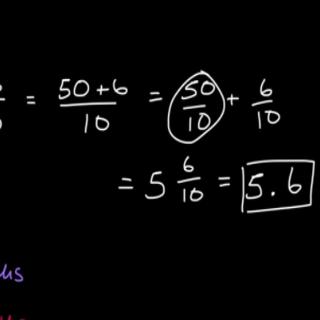 = 50+6/10 = 50/10 + 6/10
= 5 6/10 = 5.6